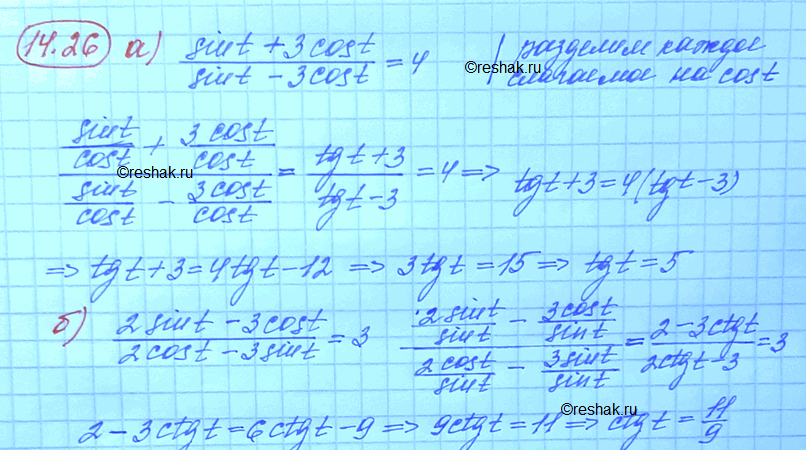 14.26 а) (sint + 3cost)/(sint − 3cost) = 4 | разделим каждое
слагаемое на cost
©reshak.ru
(sint/cost + 3cost/cost)/(sint/cost − 3cost/cost) = (tgt + 3)/(tgt − 3) = 4 => tgt + 3 = 4(tgt − 3)
©reshak.ru
©reshak.ru
=> tgt + 3 = 4tgt − 12 => 3tgt = 15 => tgt = 5
б) (2sint − 3cost)/(2cost − 3sint) = 3 (2sint/sint − 3cost/sint)/(2cost/sint − 3sint/sint) = (2 − 3ctgt)/(2ctgt − 3) = 3
©reshak.ru
2 − 3ctgt = 6ctgt − 9 => 9ctgt = 11 => ctgt = 11/9